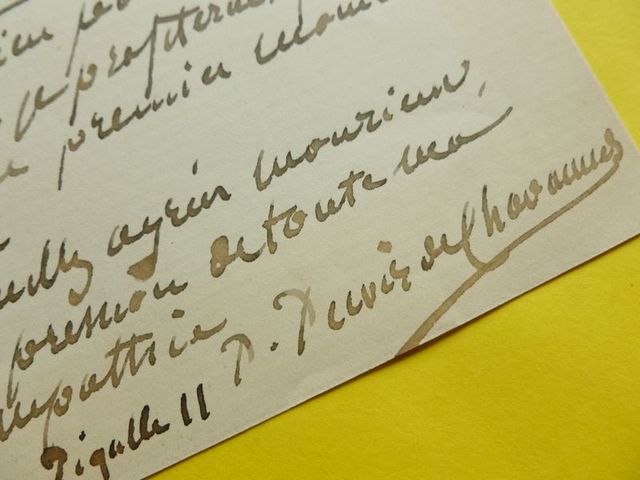 profiterai
premier mome
agréer monsieur,
pression de toute ma
mpathie
P. Puvis de Chavannes
Pigalle 11